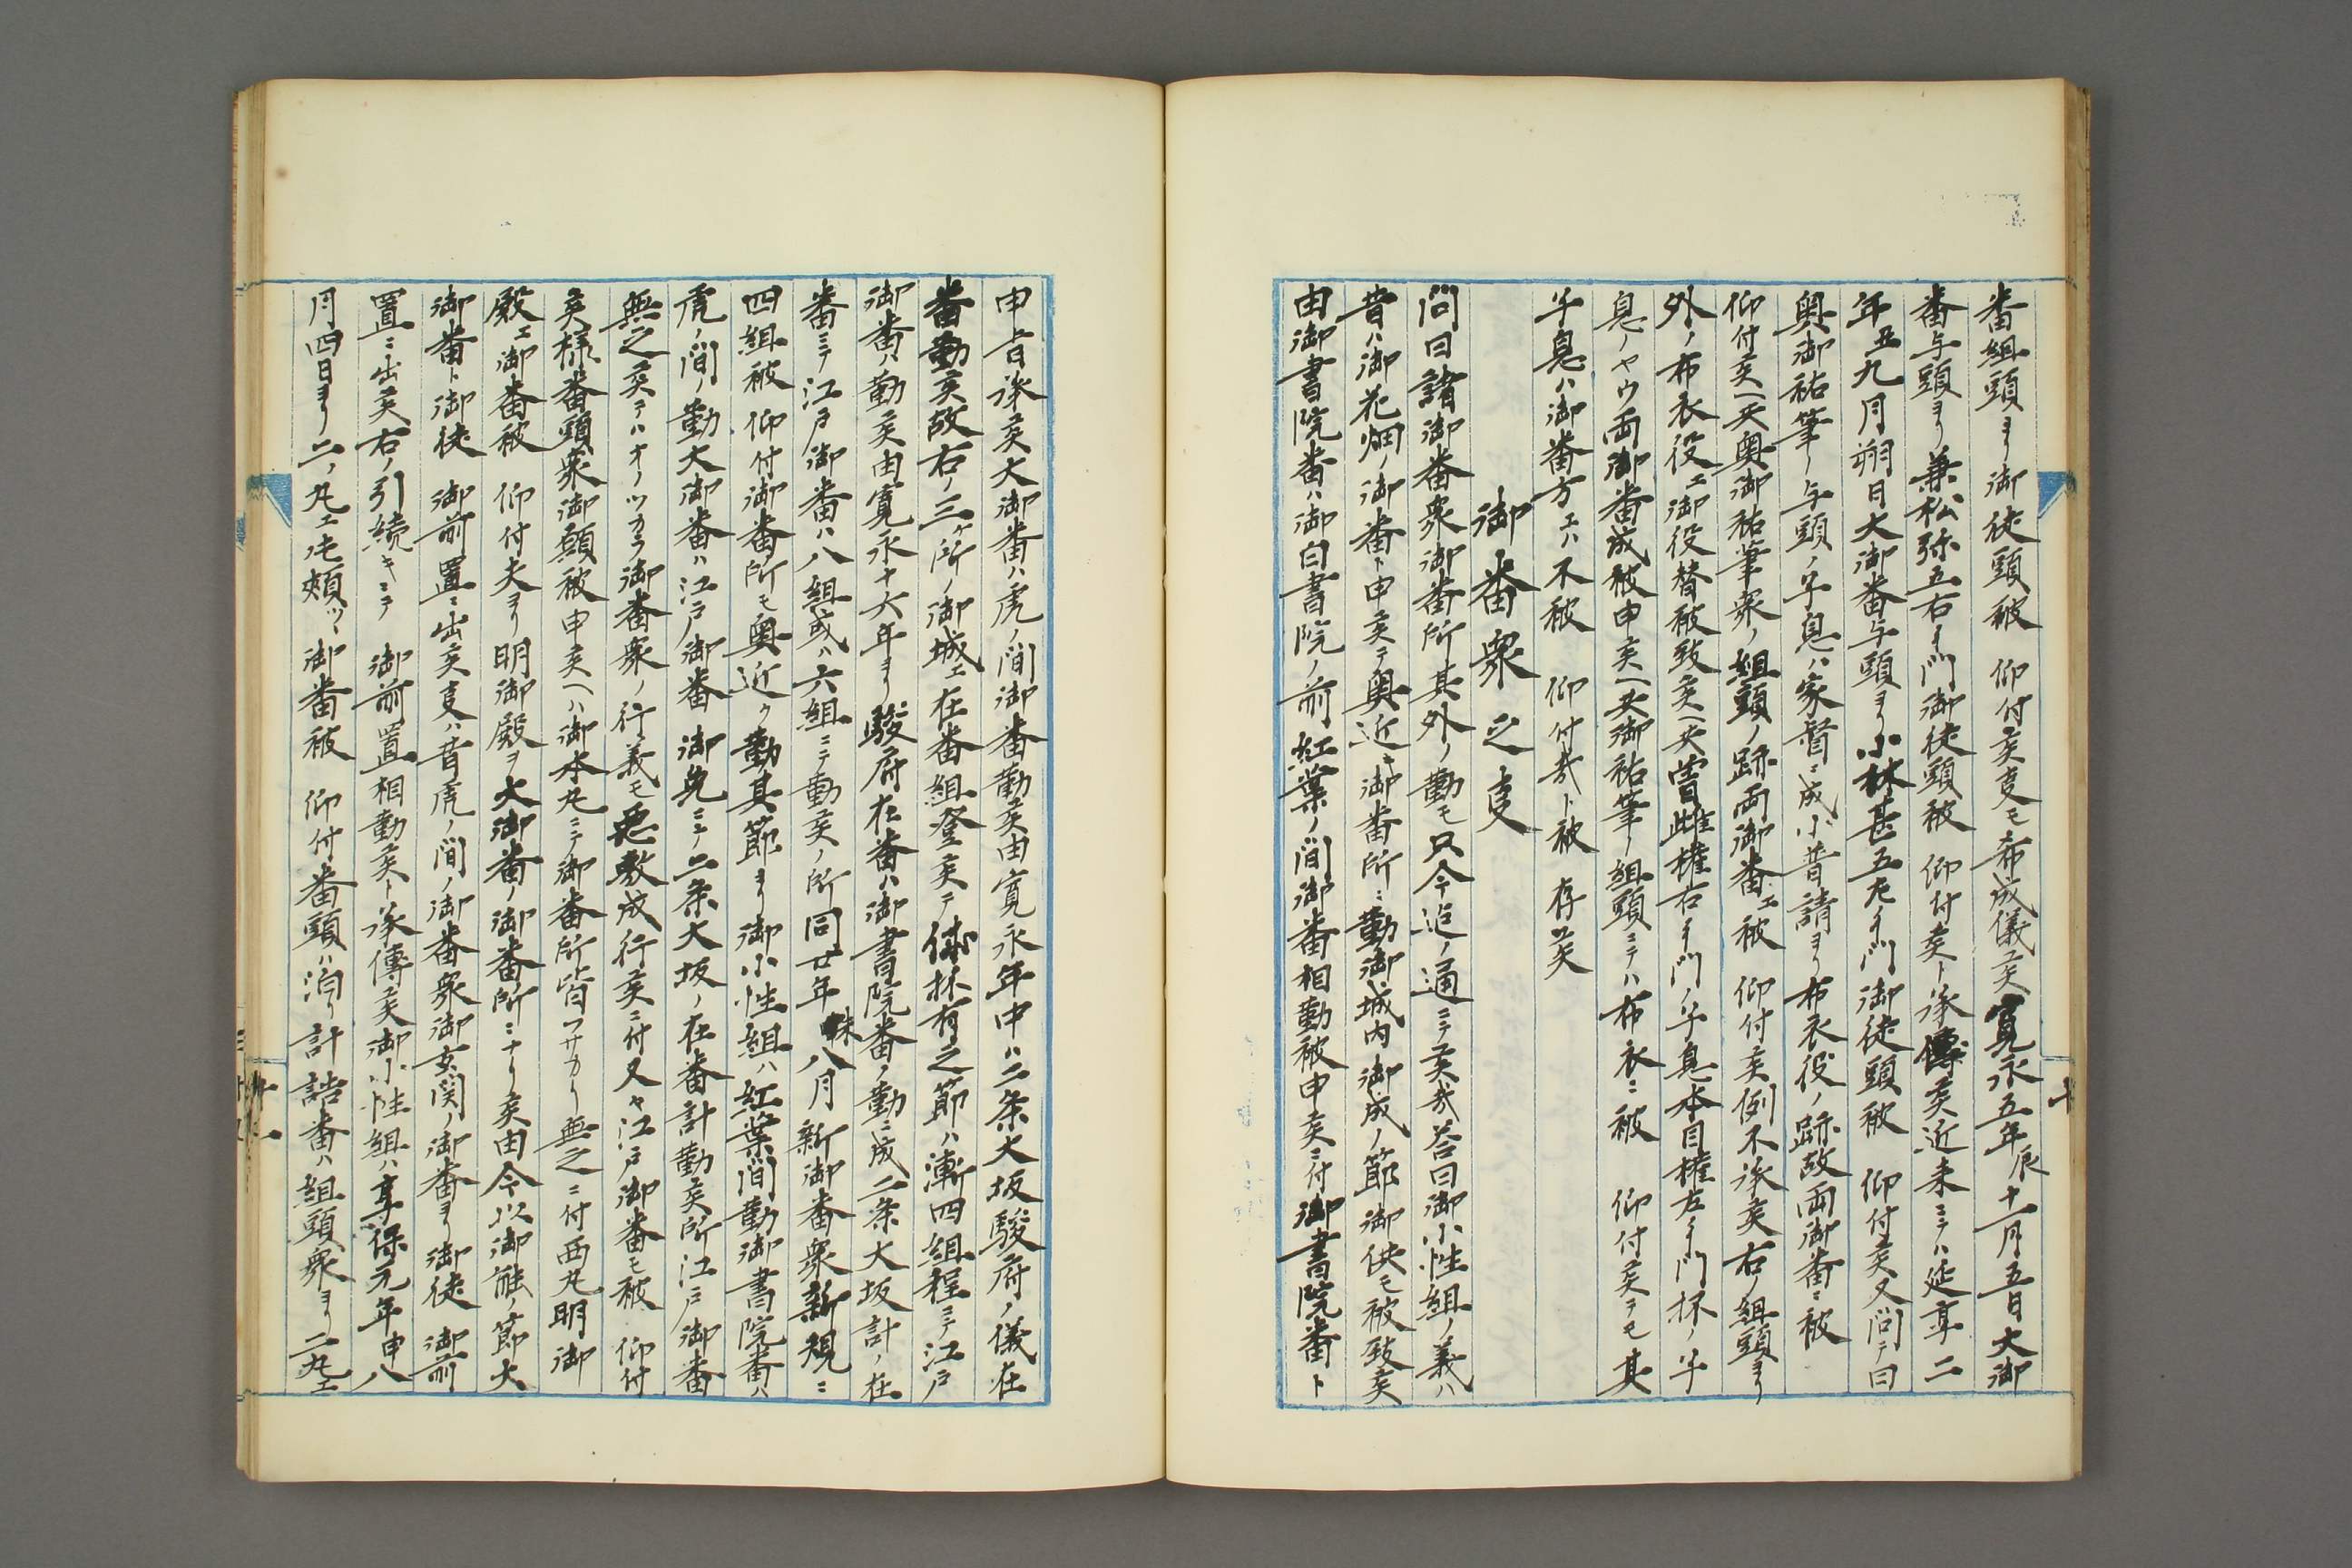 番組頭ヨリ御徒頭被　仰付候支モ希成儀候寛永五年辰十一月五日大御
番与頭ヨリ兼松弥五右ヱ門御徒頭被　仰付候ト承傳候近来ニテハ延享二
年丑九月朔日大御番与頭ヨリ小林甚五左ヱ門御徒頭被　仰付候又問テ曰
奥御祐筆ノ与頭ノ子息ハ家督ニ成小普請ヨリ布衣役ノ跡故両御番ニ被
仰付候ヘ共奥御祐筆衆ノ組頭ノ跡両御番エ被　仰付候例不承候右ノ組頭ヨリ
外ノ布衣役エ御役替被致候ヘ共曽雌権右ヱ門ノ子息本目権左ヱ門抔ノ子
息ノヤウ両御番成被申候ヘ共御祐筆ノ組頭ニテハ布衣ニ被　仰付候テモ其
子息ハ御番方エハ不被　仰付哉ト被　存候
御番衆之支
問曰諸御番衆御番所其外ノ勤モ只今迄ノ通ニテ候哉答曰御小性組ノ義ハ
昔ハ御花畑ノ御番ト申候テ奥近キ御番所ニ勤御城内御成ノ節御供モ被致候
由御書院番ハ御白書院ノ前紅葉ノ間御番相勤被申候ニ付御書院番ト
申旨承候大御番ハ虎ノ間御番勤候由寛永年中ハ二条大坂駿府ノ儀在
番勤候故右ノ三ヶ所ノ御城エ在番組登候テ休抔有之節ハ漸四組程ニテ江戸
御番ハ勤候由寛永十六年ヨリ駿府在番ハ御書院番ノ勤ニ成二条大坂計ノ在
番ニテ江戸御番ハ八組或ハ六組ニテ勤候ノ所同廿年未八月新御番衆新規ニ
四組被　仰付御番所モ奥近ク勤其節ヨリ御小性組ハ紅葉間勤御書院番ハ
虎ノ間ノ勤大御番ハ江戸御番　御免ニテ二条大坂ノ在番計勤候所江戸御番
無之候テハオノツカラ御番衆ノ行義モ悪敷成行候ニ付又々江戸御番モ被　仰付
候様番頭衆御願被申候ヘハ御本丸ニテ御番所皆フサカリ無之ニ付西丸明御
殿エ御番被　仰付夫ヨリ明御殿ヲ大御番ノ御番所ニナリ候由今以御能ノ節大
御番ト御徒　御前置ニ出候支ハ昔虎ノ間ノ御番衆御玄関ノ御番ヨリ御徒　御前
置ニ出候右ノ引続キニテ　御前置相勤候ト承傳候御小性組ハ享保元年申八
月四日ヨリ二ノ丸エモ頬ツヽ御番被　仰付番頭ハ泊リ計詰番ハ組頭衆ヨリ二丸エ